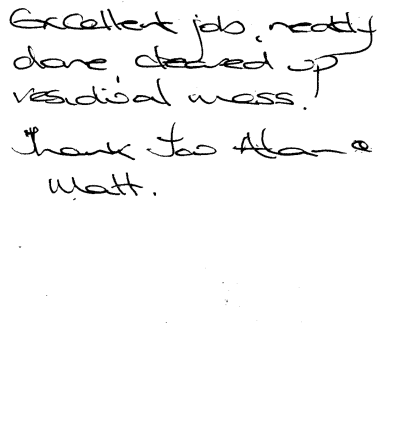 Excellent job, neatly
done cleared up
residual mess!
Thank You Alan &
Matt.